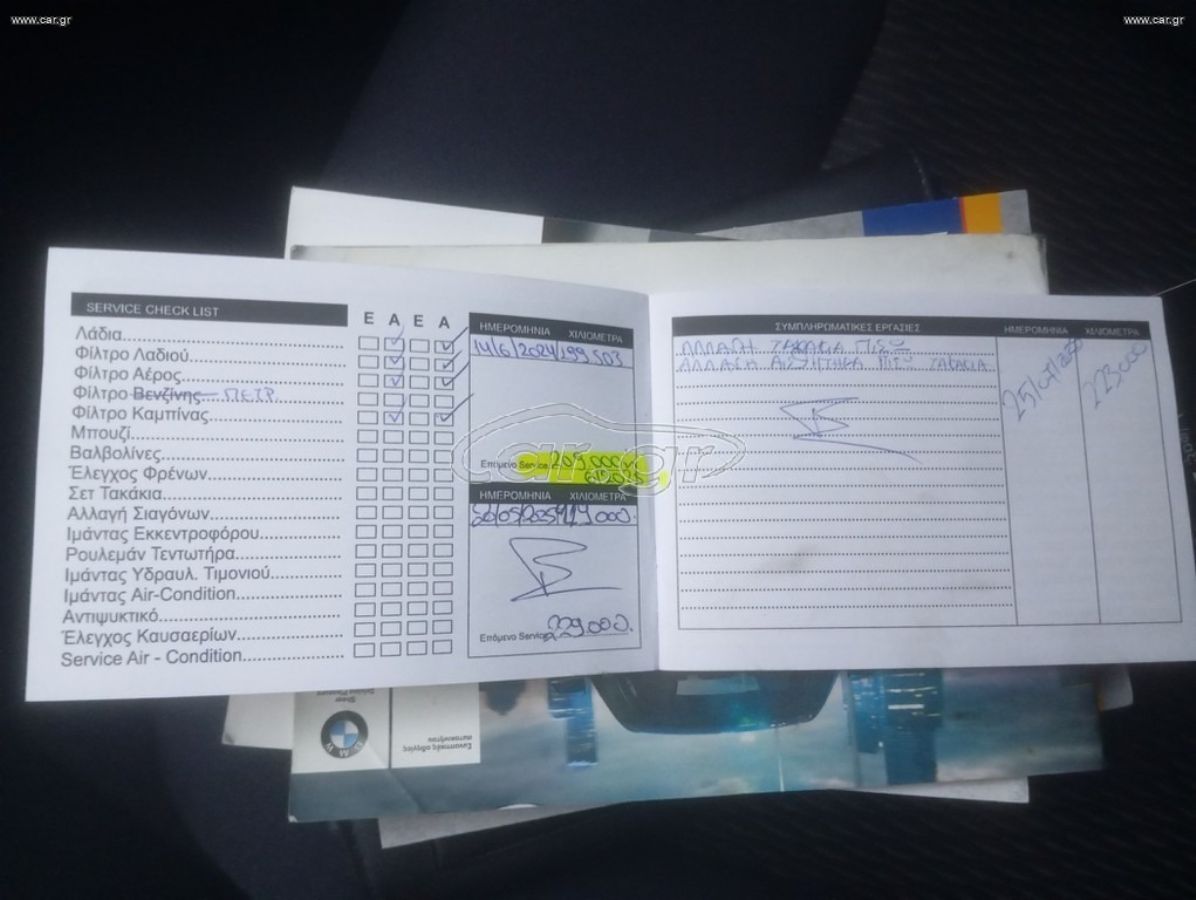 www.car.gr
www.car.gr
SERVICE CHECK LIST
Ε Α Ε Α
Λάδια
Φίλτρο Λαδιού
Φίλτρο Αέρος
Φίλτρο Βενζίνης ΠΕΤΡ.
Φίλτρο Καμπίνας
Μπουζί
Βαλβολίνες
Έλεγχος Φρένων
Σετ Τακάκια
Αλλαγή Σιαγόνων
Ιμάντας Εκκεντροφόρου
Ρουλεμάν Τεντωτήρα
Ιμάντας Υδραυλ. Τιμονιού
Ιμάντας Air-Condition
Αντιψυκτικό
Έλεγχος Καυσαερίων
Service Air - Condition
ΗΜΕΡΟΜΗΝΙΑ ΧΙΛΙΟΜΕΤΡΑ
14/6/2024 199.503
Επόμενο Service 209.000
ΗΜΕΡΟΜΗΝΙΑ ΧΙΛΙΟΜΕΤΡΑ
219.000.
Επόμενο Service 229.000.
ΣΥΜΠΛΗΡΩΜΑΤΙΚΕΣ ΕΡΓΑΣΙΕΣ ΗΜΕΡΟΜΗΝΙΑ ΧΙΛΙΟΜΕΤΡΑ
ΑΛΛΑΓΗ ΤΑΚΑΚΙΑ ΠΙΣΩ
ΑΛΛΑΓΗ ΑΙΣΘΗΤΗΡΑ ΠΙΣΩ ΤΑΚΑΚΙΑ
223000
car.gr
BMW
Συνοπτικές οδηγίες
αυτοκινήτου